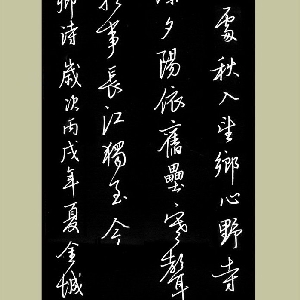 處秋入望鄉心野寺
深夕陽依舊壘寒聲
事長江獨至今
卿詩歲次丙戌年夏金城